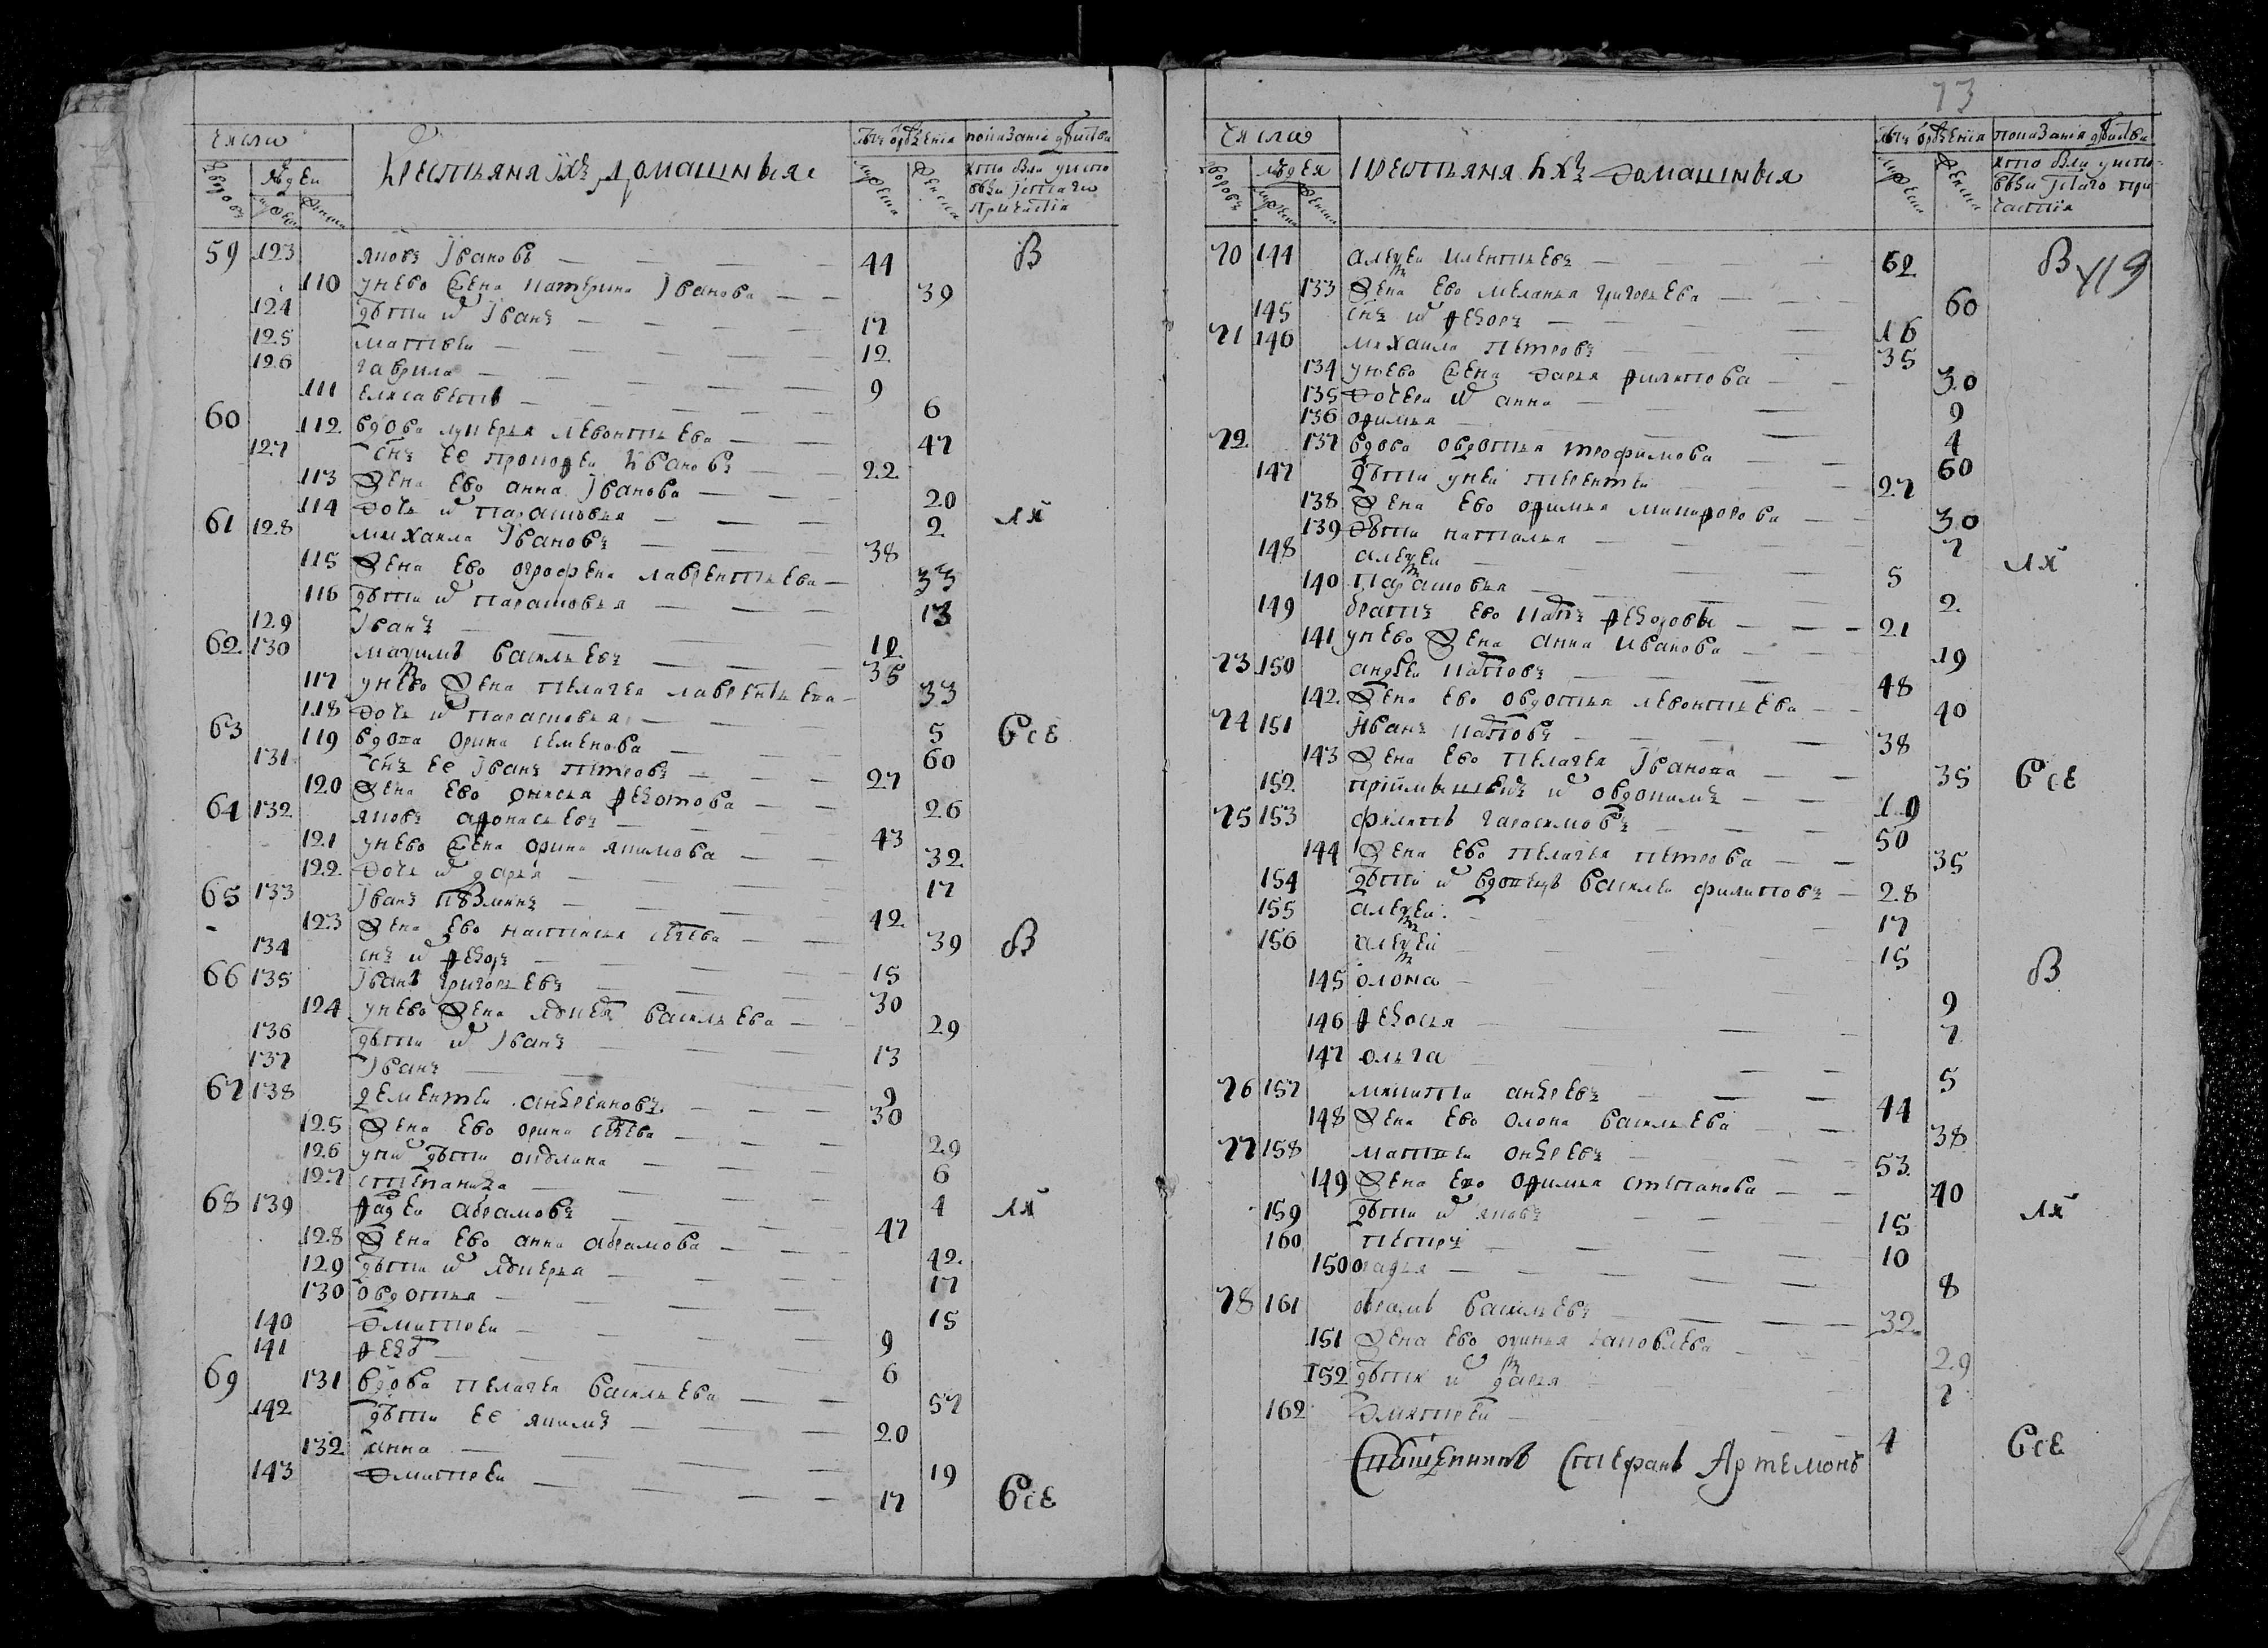 числа
Крестьяня їхъ домашныя
лѣтъ от рожденія
показаніе действа
дворовъ
людей
мужеска
женска
мужеска
женска
хто были у испо
веди і стаго
причастія
59 123 яковъ Івановъ 44 В
110 у нево жена катерина Іванова 39
124 дѣти их Іванъ 17
125 матвеи 12
126 гаврила 9
111 елисаветъ 6
60 112 вдова лукерья левонтьева 47
127 снъ ее прокофеи Ивановъ 22
113 жена ево анна Іванова 20
114 дочь их парасковья 2 ля
61 128 михаила Івановъ 38
115 жена ево огрофена лаврентьева 33
116 дѣти их парасковья 13
129 Іванъ 12
62 130 максимъ васильевъ 35
117 у нево жена пелагея лаврентьева 33
118 дочь их парасковья 5
63 119 вдова орина семенова 60 все
131 снъ ее Іванъ петровъ 27
120 жена ево федотова 26
64 132 яковъ афонасьевъ 43
121 у нево жена орина якимова 32
122 дочь их дарья 17
65 133 Іванъ кузминъ 42
123 жена ево настасья 39 В
134 снъ их федоръ 15
66 135 Іванъ григорьевъ 30
124 у нево жена васильева 29
136 дѣти их Іванъ 13
137 Іванъ 9
67 138 дементеи андреяновъ 30
125 жена ево орина 29
126 у них дѣти акулина 6
127 степанида 4 ля
68 139 фадеи абрамовъ 47
128 жена ево анна абрамова 42
129 дѣти их лукерья 17
130 овдотья 15
140 дмитреи 9
141 6
69 131 вдова пелагея васильева 57
142 дѣти ее якимъ 20
132 анна 19
143 дмитреи 17 все
73
числа
крестьяня ихъ домашныя
лѣтъ от рожденія
показаніе действа
дворовъ
людей
мужеска
женска
мужеска
женска
хто были у испо
веди стаго при
частія
70 144 алексеи илентьевъ 62 В 419
133 жена ево меланья григорьева 60
145 снъ их федоръ 16
71 146 михаила петровъ 35
134 у нево жена дарья филипова 30
135 дочери их анна 9
136 офимья 4
72 137 вдова овдотья трофимова 60
147 дѣти у неи терентеи 27
138 жена ево офимья микифорова 30
139 дѣти наталья 7
148 алексеи 5 ля
140 парасковья 2
149 братъ ево федоровъ 21
141 у нево жена анна иванова 19
73 150 андреи 48
142 жена ево овдотья левонтьева 40
74 151 Иванъ 38
143 жена ево пелагея Іванова 35 все
152 приимышевъ их овдокимъ 19
75 153 филипъ гарасимовъ 50
144 жена ево пелагея петрова 35
154 дѣти их вдовецъ василеи филиповъ 28
155 алексеи 17
156 алексеи 15
145 олона 9 В
146 федосья 7
147 ольга 5
76 157 микитеи андреевъ 44
148 жена ево олона васильева 38
77 158 матвеи ондреевъ 53
149 жена ево офимья степанова 40
159 дѣти их яковъ 15 ля
160 петръ 10
150 8
78 161 обрамъ васильевъ 32
151 жена ево яковлева 29
152 дѣти их дарья 7
162 дмитреи 4 все
Священникъ Стефанъ Артемонъ